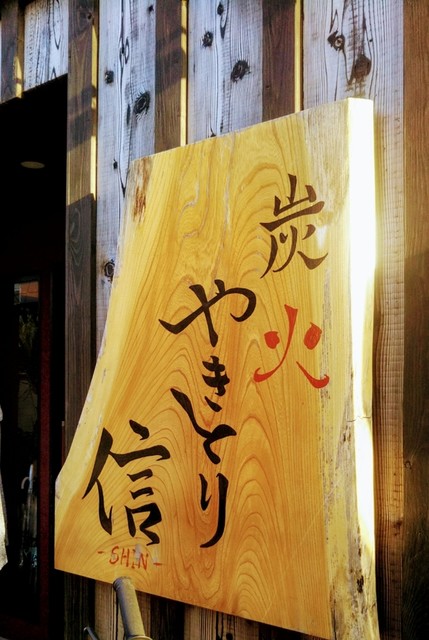 炭火
やきとり
信
-SHIN-